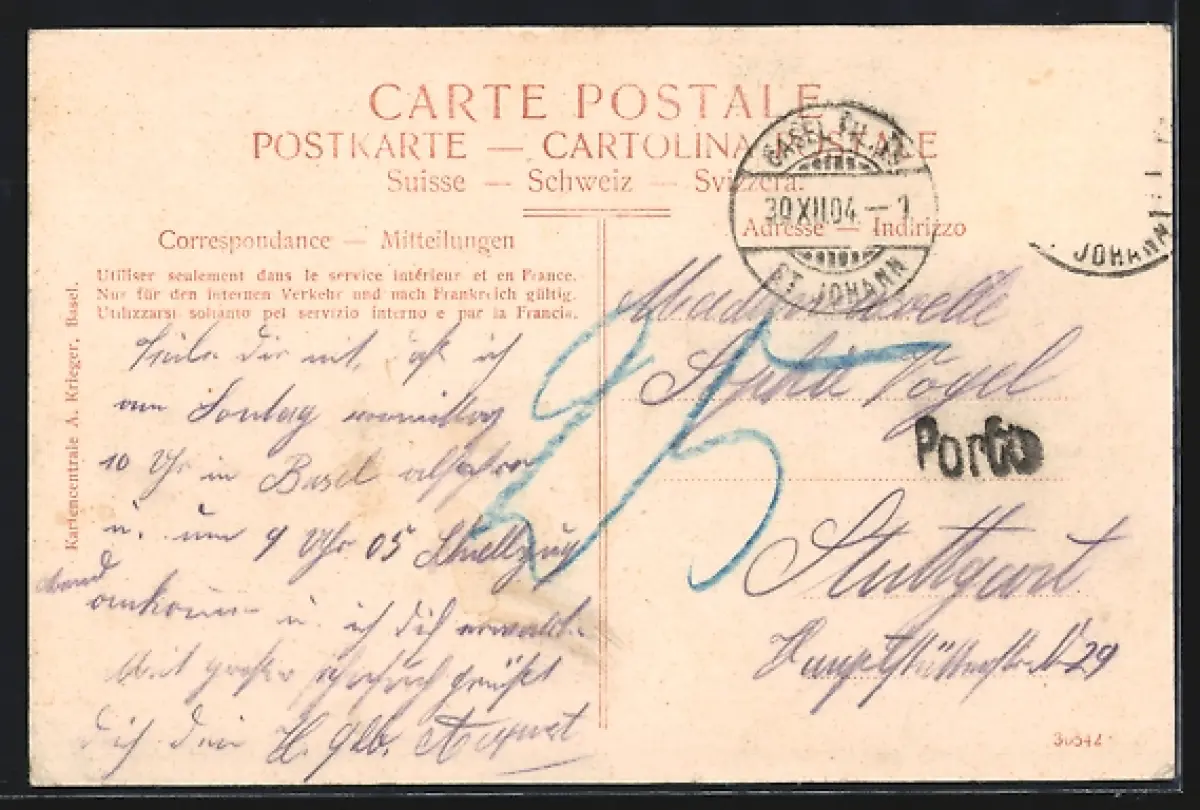 CARTE POSTALE
POSTKARTE — CARTOLINA POSTALE
Suisse — Schweiz — Svizzera.
Correspondance — Mitteilungen
Utiliser seulement dans le service intérieur et en France.
Nur für den internen Verkehr und nach Frankreich gültig.
Utilizzarsi soltanto pel servizio interno e par la Francia.
Kartencentrale A. Krieger, Basel.
Teile dir mit, daß ich
am Sontag vormittag
10 Uhr in Basel
u. um 9 Uhr 05 Schnellzug
abend
ankome u. ich dich erwarte.
Mit großer grüßt
dich dein H. glb. August
BASEL
30.XII.04. — 1
ST. JOHANN
JOHANN
Adresse — Indirizzo
Mademoiselle
Sophie Vogel
Porto
25
Stuttgart
Hauptstätterstr. 29